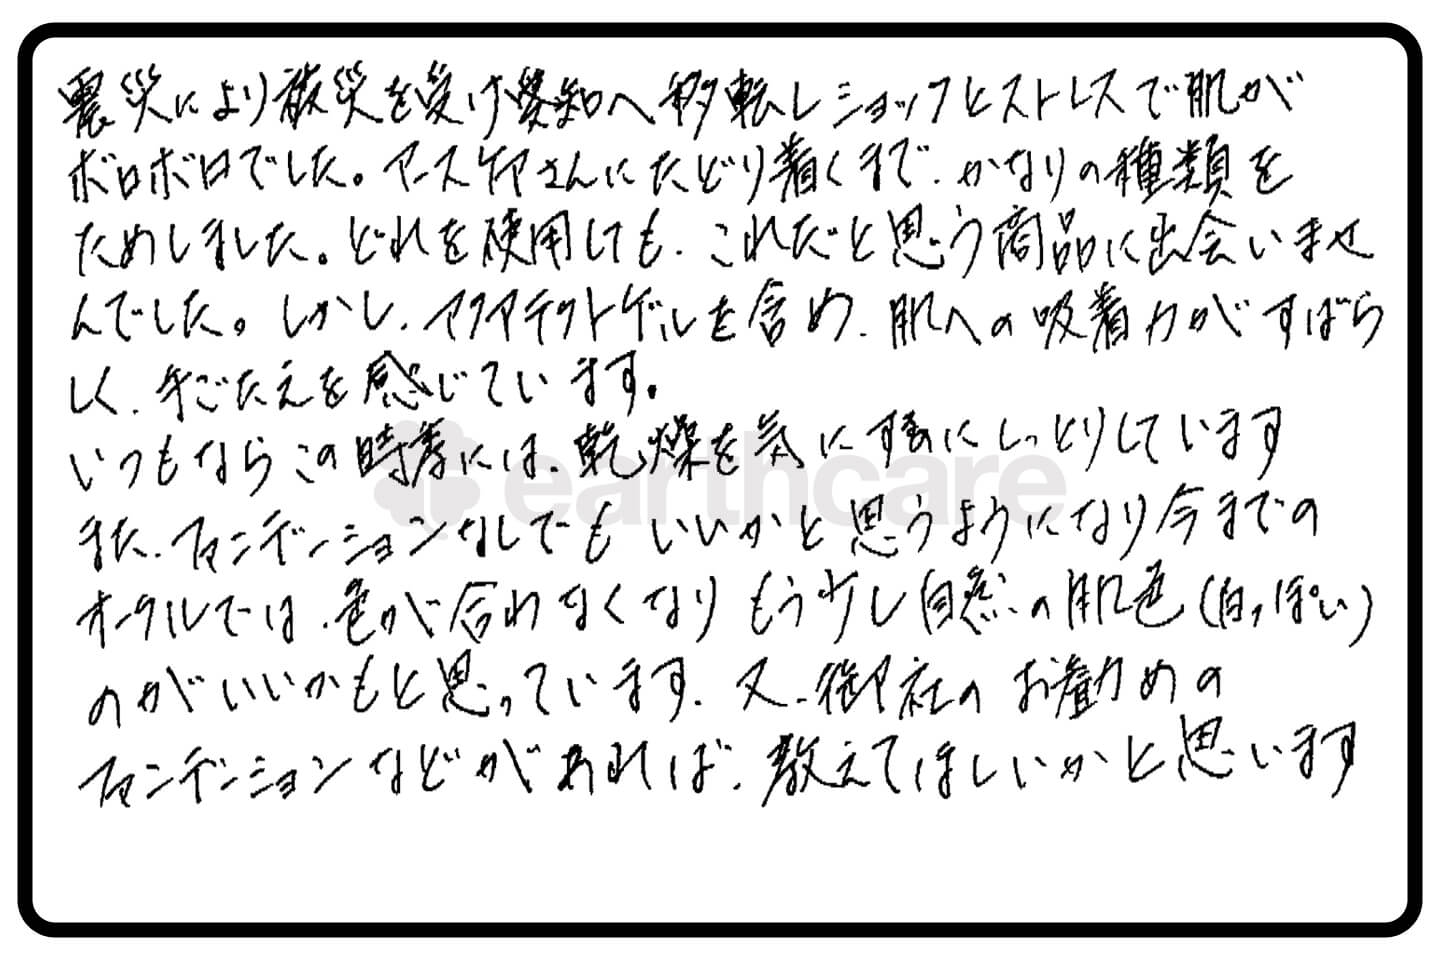 震災により被災を受け愛知へ移転しショックとストレスで肌が
ボロボロでした。アースケアさんにたどり着くまで、かなりの種類を
ためしました。どれを使用しても、これだと思う商品に出会いませ
んでした。しかし、アクアテクトゲルを含め、肌への吸着力がすばら
しく、手ごたえを感じています。
いつもならこの時季には、乾燥を気にするのにしっとりしています
また、ファンデーションなしでもいいかと思うようになり今までの
オークルでは、色が合わなくなりもう少し自然の肌色(白っぽい)
のがいいかもと思っています。又、御社のお勧めの
ファンデーションなどがあれば、教えてほしいかと思います
earthcare